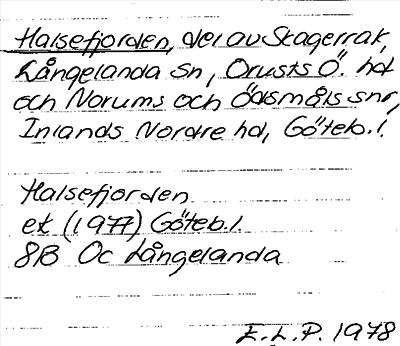 Halsefjorden, del av Skagerrak,
Långelanda sn, Orusts Ö. hd
och Norums och Ödsmåls snr,
Inlands Nordre hd, Göteb.l.
Halsefjorden
ek (1977) Göteb.l.
8B Oc Långelanda
E.L.P. 1978